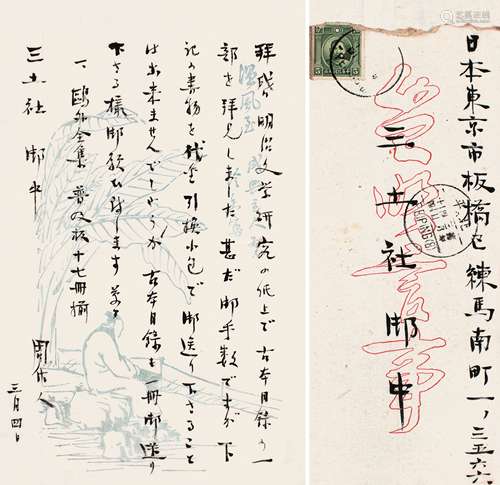 拝啓、明治文学研究の紙上で古本目録の一
部を拝見しました 甚だ御手数ですが 下
記の書物を代金引換小包で御送り下さること
は出来ませんでしようか 古本目録を一冊御送り
下さる様御願ひ致します 草々
一、鷗外全集 普及板 十七冊揃
周作人
三月四日
三土社 御中
日本東京市板橋区練馬南町一ノ三五六六
三土社御中
PEIPING
5 5